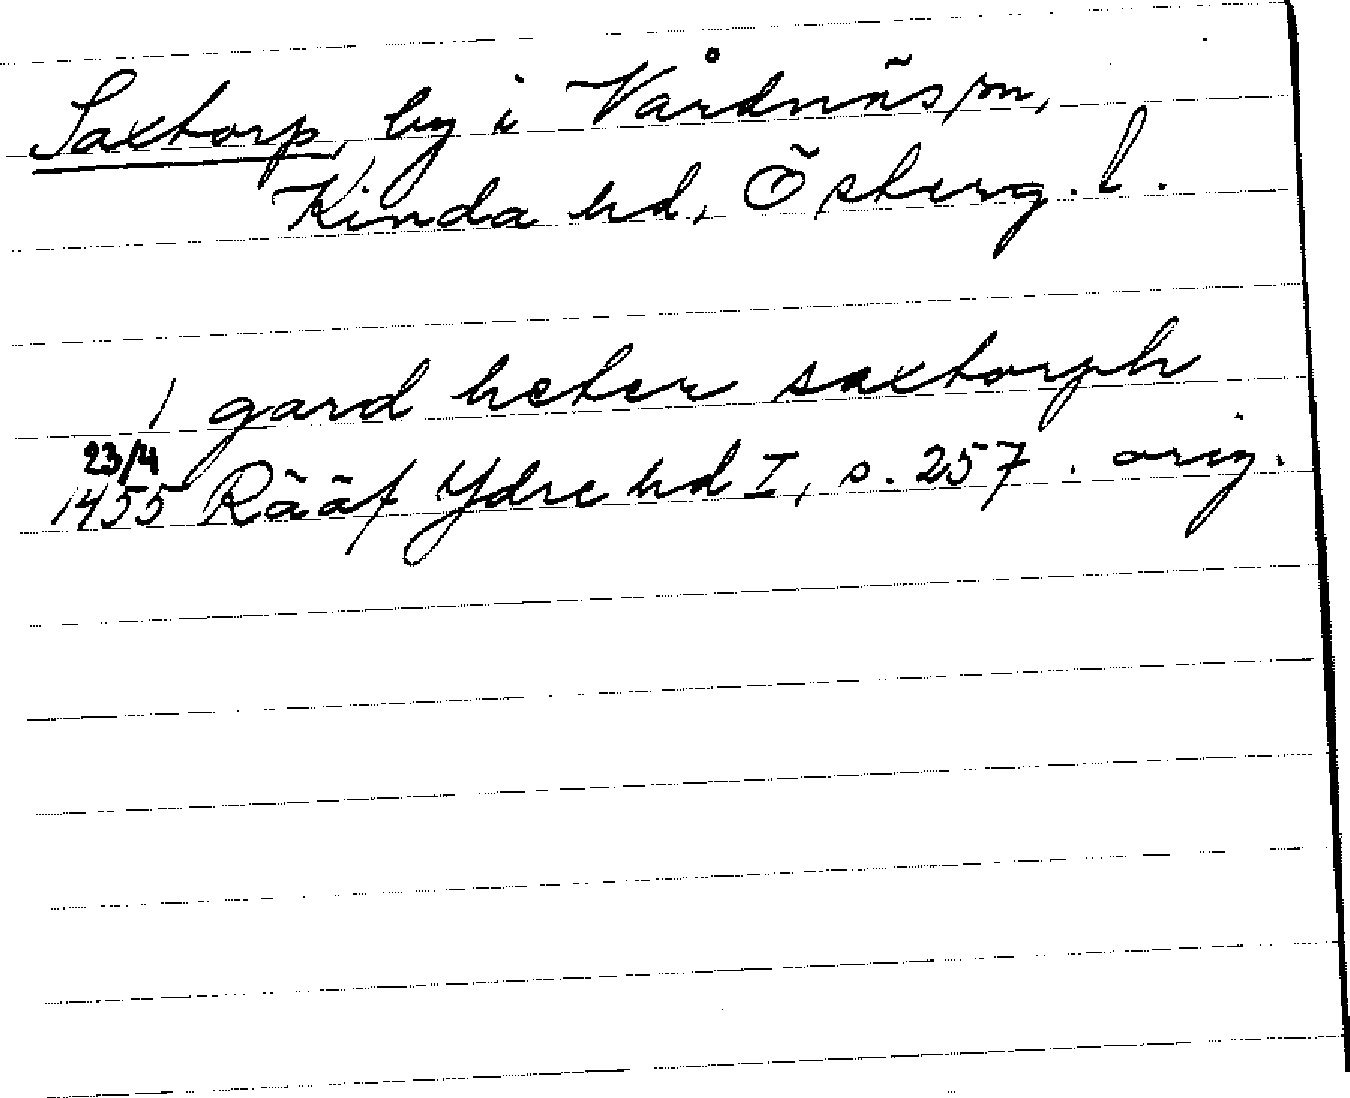 Saxtorp, by i Vårdnäs sn,
Kinda hd, Österg. l.
1 gard heter saxtorph
23/4
1455 Rääf Ydre hd I, s. 257. orig.